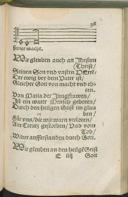 seiner macht.
Wir glauben auch an Jhesum
Christ/
Seinen Son und unsern
Der ewig bey dem Vater ist/
Gleicher Gott von macht und eh-
ren.
Von Maria der Jungfrawen/
Ist ein warer Mensch geboren/
Durch den heiligen Geist im glau-
ben/
Für uns/ die wir warn verloren/
Am Creutz gestorben/ Und vom
Tod/
Wider aufferstanden durch Gott.
Wir glauben an den heilgē Geist
Gott